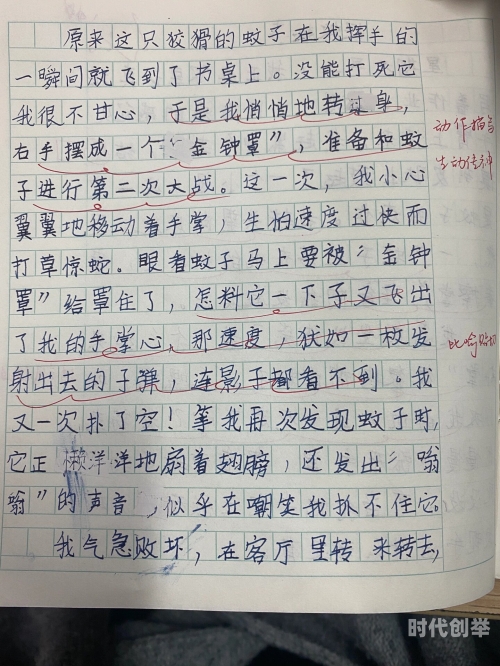 原来这只狡猾的蚊子在我挥手的
一瞬间就飞到了书桌上。没能打死它
我很不甘心，于是我悄悄地转过身，
右手摆成一个“金钟罩”，准备和蚊
动作描写
生动传神
子进行第二次大战。这一次，我小心
翼翼地移动着手掌，生怕速度过快而
打草惊蛇。眼看蚊子马上要被“金钟
罩”给罩住了，怎料它一下子又飞出
了我的手掌心，那速度，犹如一枚发
比喻贴切
射出去的子弹，连影子都看不到。我
又一次扑了空！等我再次发现蚊子时，
它正懒洋洋地扇着翅膀，还发出“嗡
嗡”的声音，似乎在嘲笑我扑不住它。
我气急败坏，在客厅里转来转去，
时代创举